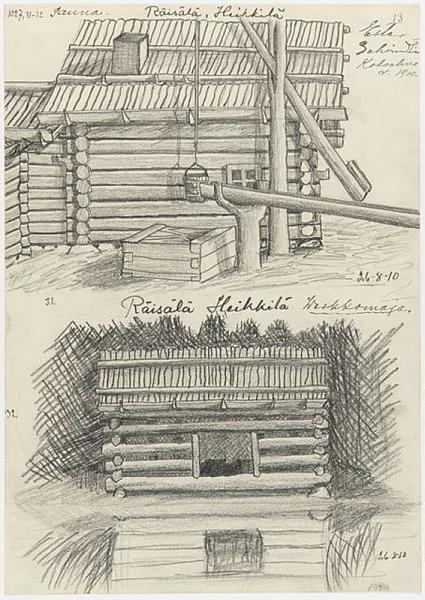 1027, 31-32 Sauna. Räisälä, Heikkilä
13
Ester
Kokoelma
v. 1910.
26-8-10
31. Räisälä Heikkilä Verkkomaja.
32.
26-8-10